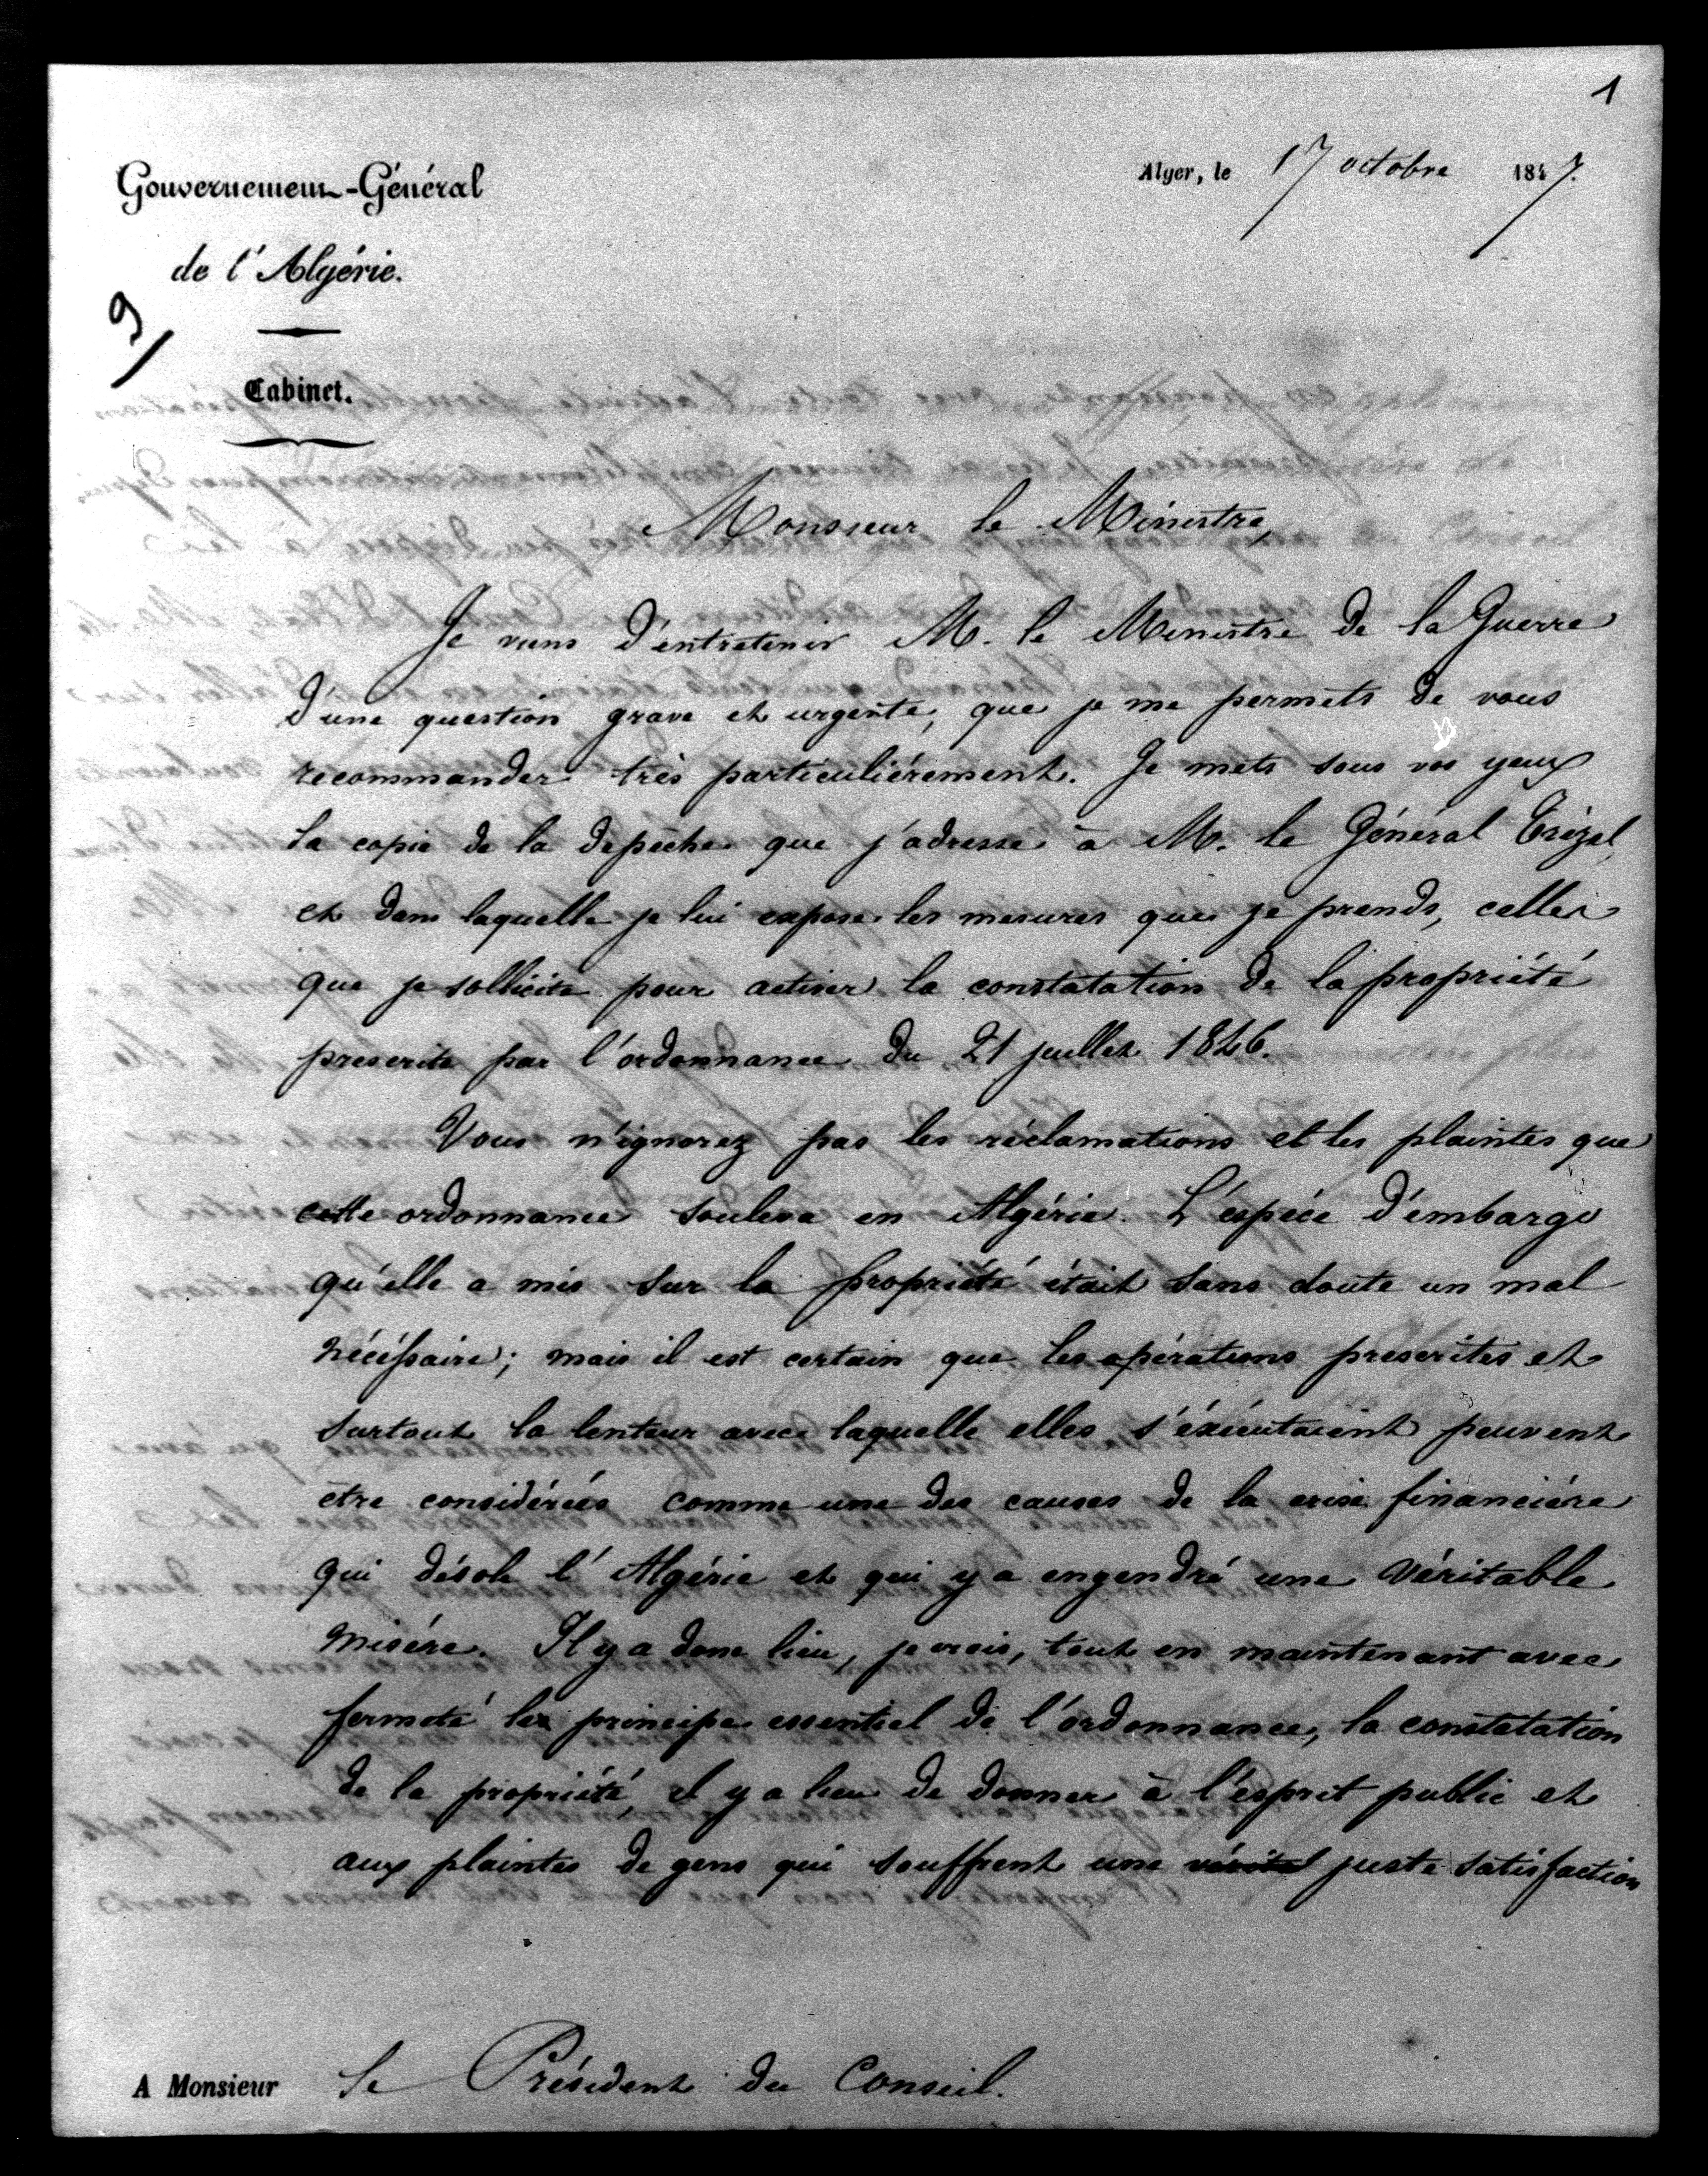 1
Alger, le 17 octobre 1847.
Gouvernement-Général
de l'Algérie.
9
Cabinet.
Monsieur le Ministre,
Je viens d'entretenir M. le Ministre de la Guerre
d'une question grave et urgente, que je me permets de vous
recommander très particulièrement. Je mets sous vos yeux
la copie de la dépêche que j'adresse à M. le Général Trézel,
et dans laquelle je lui expose les mesures que je prends, celles
que je sollicite pour activer la constatation de la propriété
prescrite par l'ordonnance du 21 juillet 1846.
Vous n'ignorez pas les réclamations et les plaintes que
cette ordonnance souleva en Algérie. L'espèce d'embargo
qu'elle a mis sur la propriété était sans doute un mal
nécéssaire; mais il est certain que les opérations prescrites et
surtout la lenteur avec laquelle elles s'éxécutaient peuvent
être considérées comme une des causes de la crise financière
qui désole l'Algérie et qui y a engendré une véritable
misère. Il y a donc lieu, je crois, tout en maintenant avec
fermeté le principe essentiel de l'ordonnance, la constatation
de la propriété, il y a lieu de donner à l'esprit public et
aux plaintes de gens qui souffrent une juste satisfaction
A Monsieur le Président du Conseil.